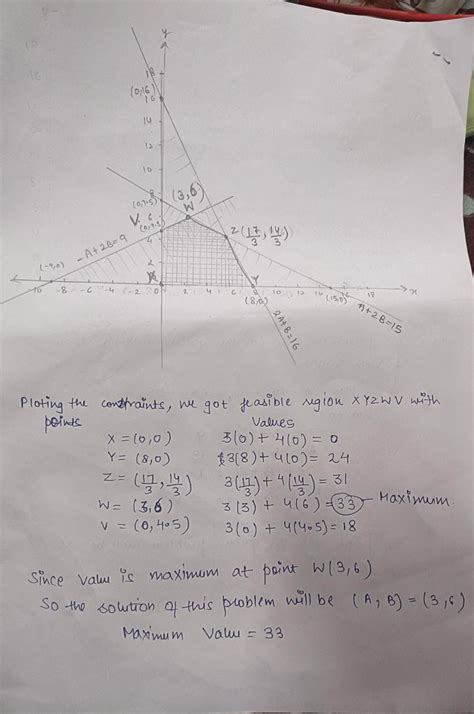 y
18
(0,16) 16
14
12
10
8
(0,7.5)
(3,6)
W
V 6
(0,4.5)
4
Z(17/3, 14/3)
-A+2B=9
2
(-9,0)
X
Y
-10 -8 -6 -4 -2 0 2 4 6 8 10 12 14 16 18 x
(8,0)
(15,0)
A+2B=15
2A+B=16
Ploting the constraints, we got feasible region XYZWV with
points Values
X = (0,0) 3(0) + 4(0) = 0
Y = (8,0) 3(8) + 4(0) = 24
Z = (17/3, 14/3) 3(17/3) + 4(14/3) = 31
W = (3,6) 3(3) + 4(6) = 33 Maximum
V = (0,4.5) 3(0) + 4(4.5) = 18
Since value is maximum at point W(3,6)
So the solution of this problem will be (A, B) = (3,6)
Maximum Value = 33